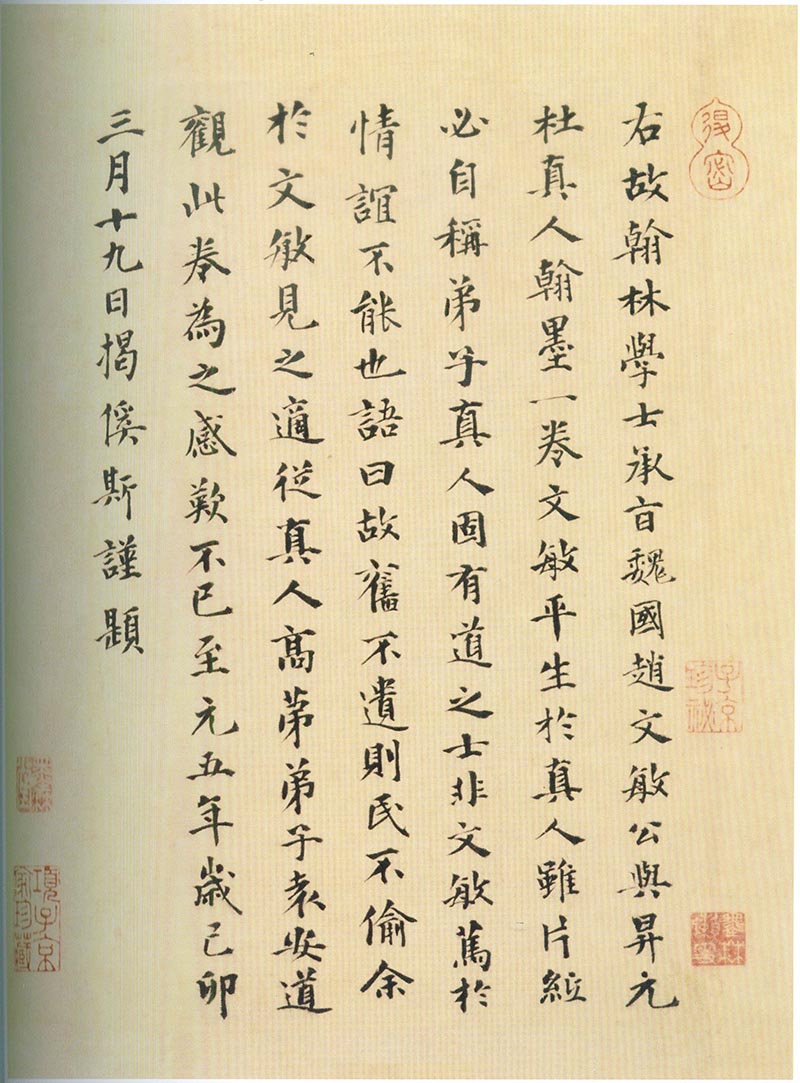 右故翰林學士承旨魏國趙文敏公與昇元
杜真人翰墨一卷文敏平生於真人雖片紙
必自稱弟子真人固有道之士非文敏篤於
情誼不能也語曰故舊不遺則民不偷余
於文敏見之適從真人高第弟子袁安道
觀此卷為之感歎不已至元五年歲己卯
三月十九日揭傒斯謹題
子京
珍祕
項子京
家珍藏